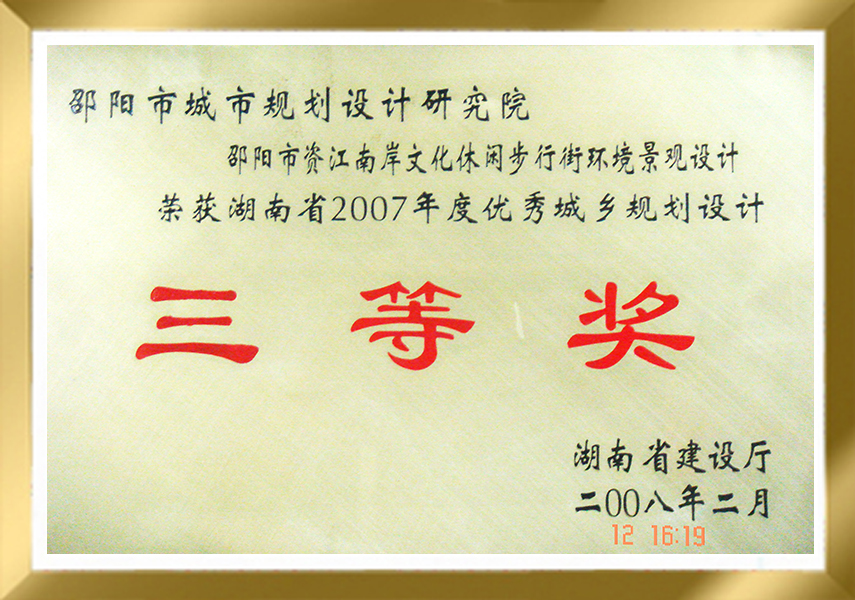 邵阳市城市规划设计研究院
邵阳市资江南岸文化休闲步行街环境景观设计
荣获湖南省2007年度优秀城乡规划设计
三等奖
湖南省建设厅
二00八年二月
12 16:19